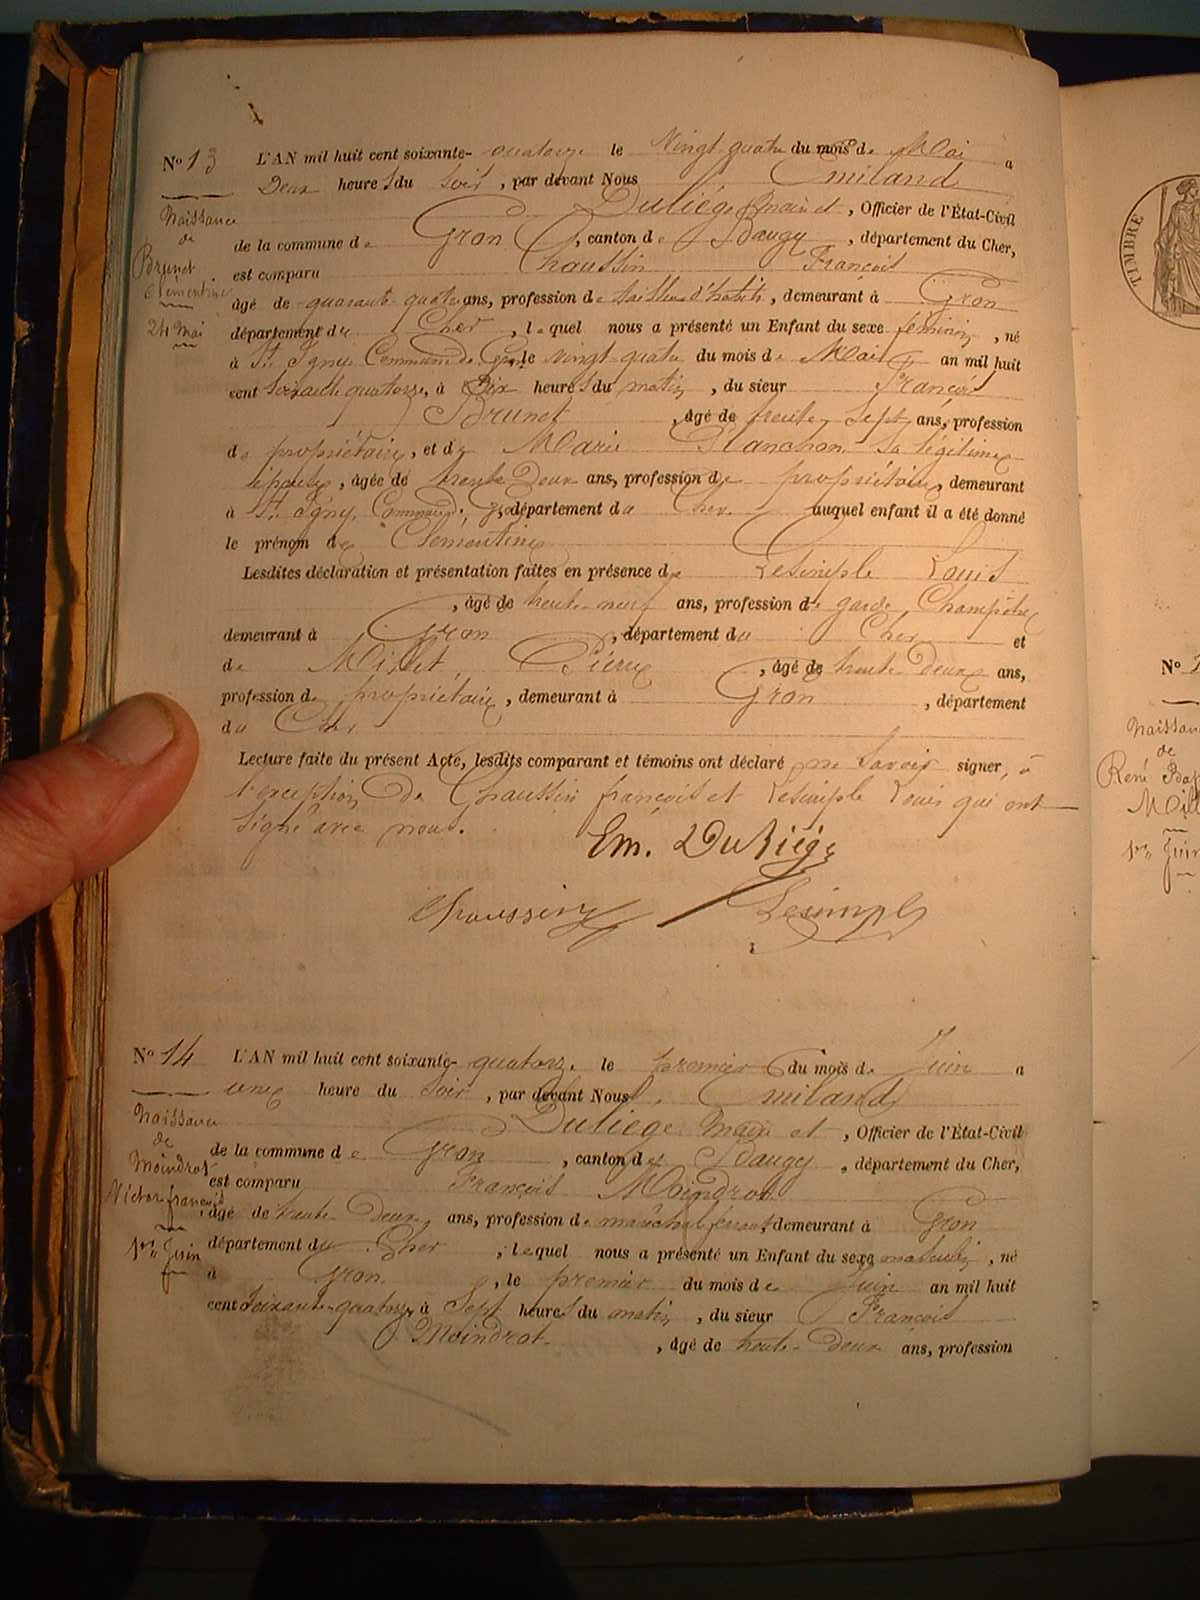 N° 13
L'AN mil huit cent soixante- quatorze le Vingt quatre du mois de Mai a
Deux heures du Soir, par devant Nous Emiland
Naissance
de
Brunet
Clémentine
24 Mai
Duliége Maire et, Officier de l'État-Civil
de la commune de Gron, canton de Baugy, département du Cher,
est comparu Chaussin François
âgé de quarante quatre ans, profession de tailleur d'habits, demeurant à Gron
département du Cher, lequel nous a présenté un Enfant du sexe féminin, né
à St. Igny Commune de Gron, le vingt-quatre du mois de Mai an mil huit
cent soixante quatorze, à Dix heures du matin, du sieur François
Brunet, âgé de trente sept ans, profession
de propriétaire, et de Marie Planchon sa légitime
épouse, âgée de trente Deux ans, profession de propriétaire, demeurant
à St. Igny, Commune de Gron, département du Cher auquel enfant il a été donné
le prénom de Clémentine
Lesdites déclaration et présentation faites en présence de Lesimple Louis
, âgé de trente-neuf ans, profession de garde Champêtre
demeurant à Gron, département du Cher et
de Millet Pierre, âgé de trente Deux ans,
profession de propriétaire, demeurant à Gron, département
du Cher
Lecture faite du présent Acte, lesdits comparant et témoins ont déclaré ne Savoir signer, à
l'exception de Chaussin françois et Lesimple Louis qui ont
Signé avec nous.
Em. Duliége
Chaussin Lesimple
N° 14
L'AN mil huit cent soixante- quatorze le premier du mois de Juin a
une heure du Soir, par devant Nous Emiland
Naissance
de
Moindrot
Victor françois
1er Juin
Duliége Maire et, Officier de l'État-Civil
de la commune de Gron, canton de Baugy, département du Cher,
est comparu François Moindrot
âgé de trente Deux ans, profession de maréchal ferrant, demeurant à Gron
département du Cher, lequel nous a présenté un Enfant du sexe masculin, né
à Gron, le premier du mois de Juin an mil huit
cent Soixante-quatorze, à Sept heures du matin, du sieur François
Moindrot, âgé de trente-Deux ans, profession
TIMBRE
N°
Naissan
de
René Bap
Mill
1er Juin